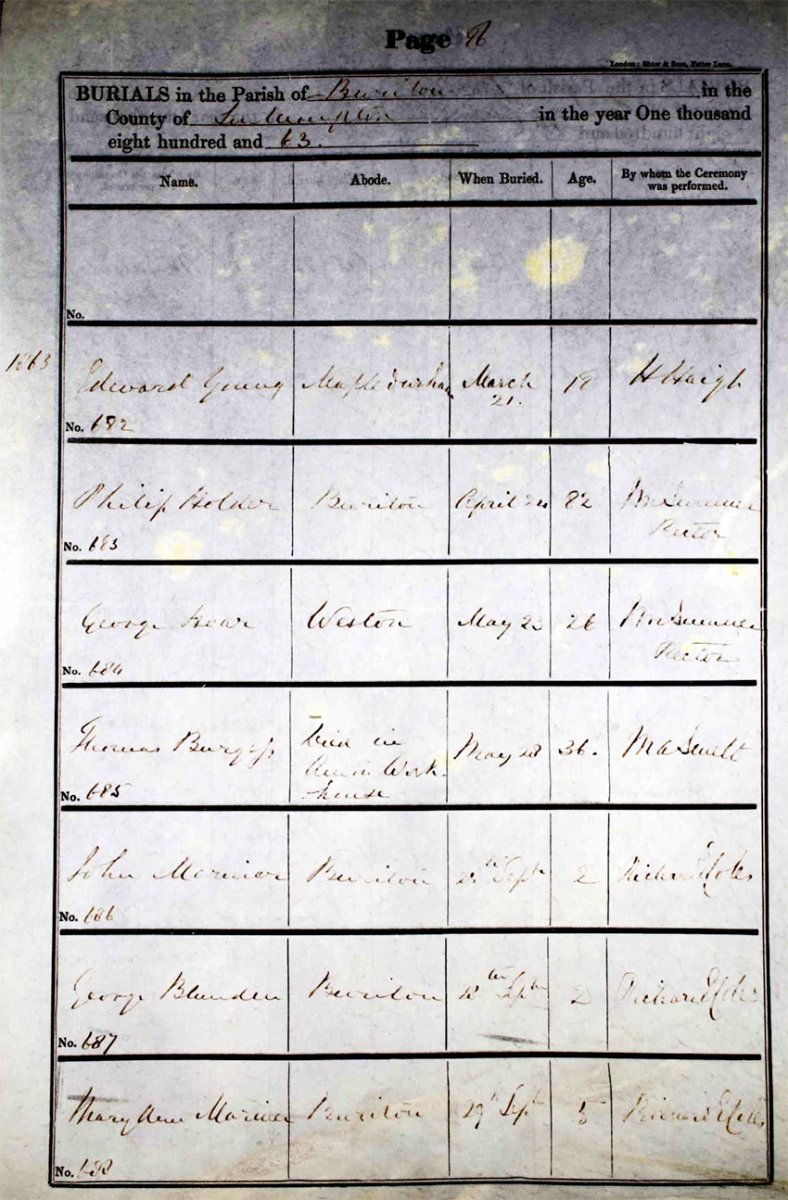 Page 86
London: Shaw & Sons, Fetter Lane.
BURIALS in the Parish of Buriton in the
County of Southampton in the year One thousand
eight hundred and 63.
Name. Abode. When Buried. Age. By whom the Ceremony was performed.
No.
1863
Edward Young Mapledurham March 21. H Haigh
No. 682
Philip Holder Buriton April 24 82 Sumner Rector
No. 683
George Hoar Weston May 23 26 Sumner Rector
No. 684
Thomas Burgess Died in Union Work-house May 28 36.
No. 685
John Mariner Buriton Septr 2 Richard Coles
No. 686
George Blunden Buriton 28th Septr 2 Richard Coles
No. 687
Mary Ann Mariner Buriton 29th Septr 5 Richard Coles
No. 688